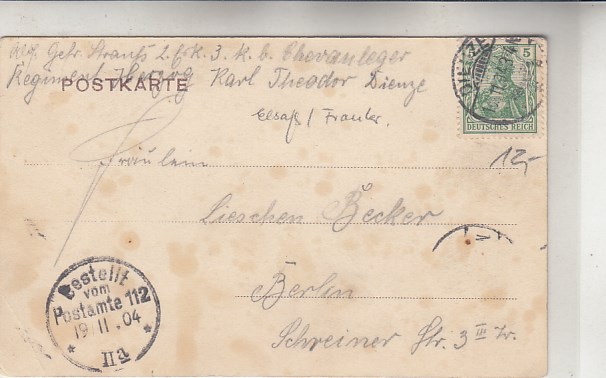 Abs. Gefr. Strauß 2. Esk. 3. k. b. Chevauleger
Regiment Herzog Karl Theodor Dieuze
POSTKARTE
Elsaß /
5
DEUTSCHES REICH
12,-
Fräulein
Lieschen Becker
Berlin
Schreiner Str. 3 III Tr.
Bestellt
vom
Postamte 112
19 11 . 04
* *
IIa